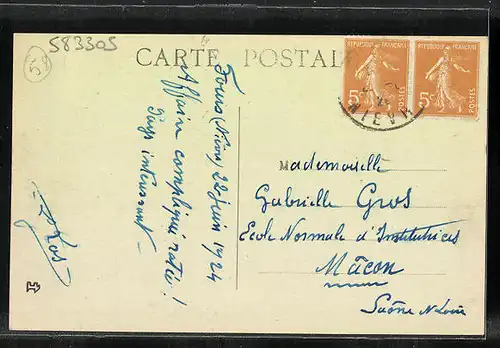 583305
CARTE POSTALE
RÉPUBLIQUE FRANÇAISE
5c
POSTES
RÉPUBLIQUE FRANÇAISE
5c
POSTES
Fours (Nièvre) 22 Juin 1924
Affaire compliquée ratée !
Pays intéressant –
Mademoiselle
Gabrielle Gros
Ecole Normale d'Institutrices
Mâcon
Saône & Loire